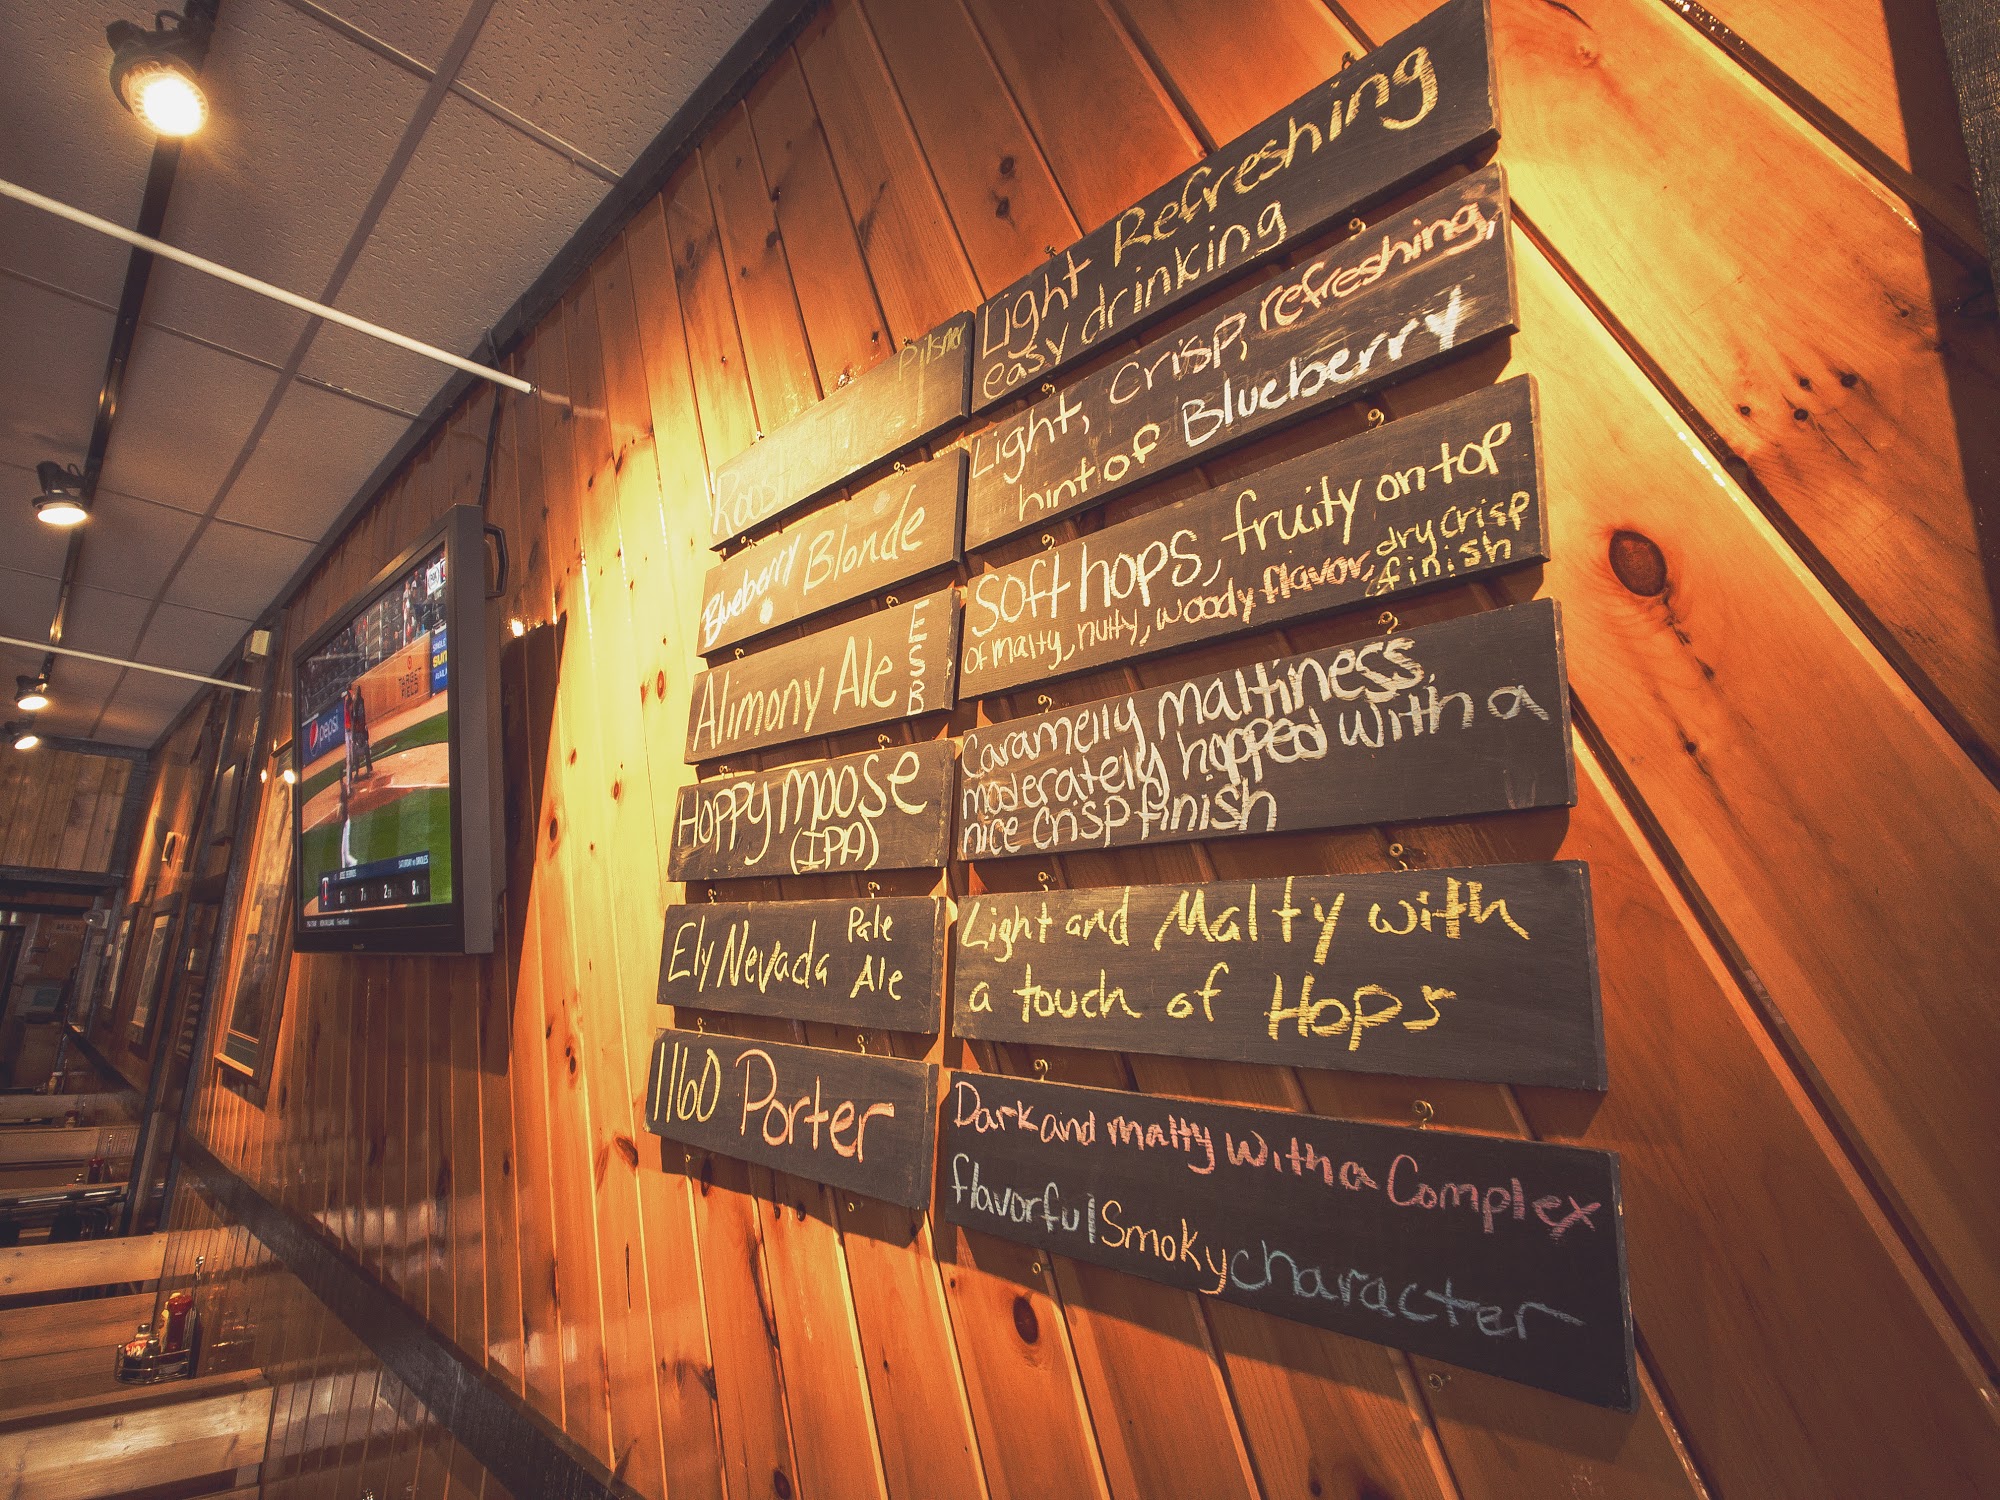 Pilsner
Light Refreshing
easy drinking
Blueberry Blonde
Light, Crisp, refreshing,
hint of Blueberry
Alimony Ale ESB
Soft hops, fruity on top
of malty, nutty, woody flavor, dry crisp
finish
Hoppy moose
(IPA)
Caramelly maltiness,
moderately hopped with a
nice crisp finish
Ely Nevada Pale
Ale
Light and Malty with
a touch of Hops
1160 Porter
Dark and malty with a Complex
flavorful Smoky character
pepsi
TARGET
FIELD